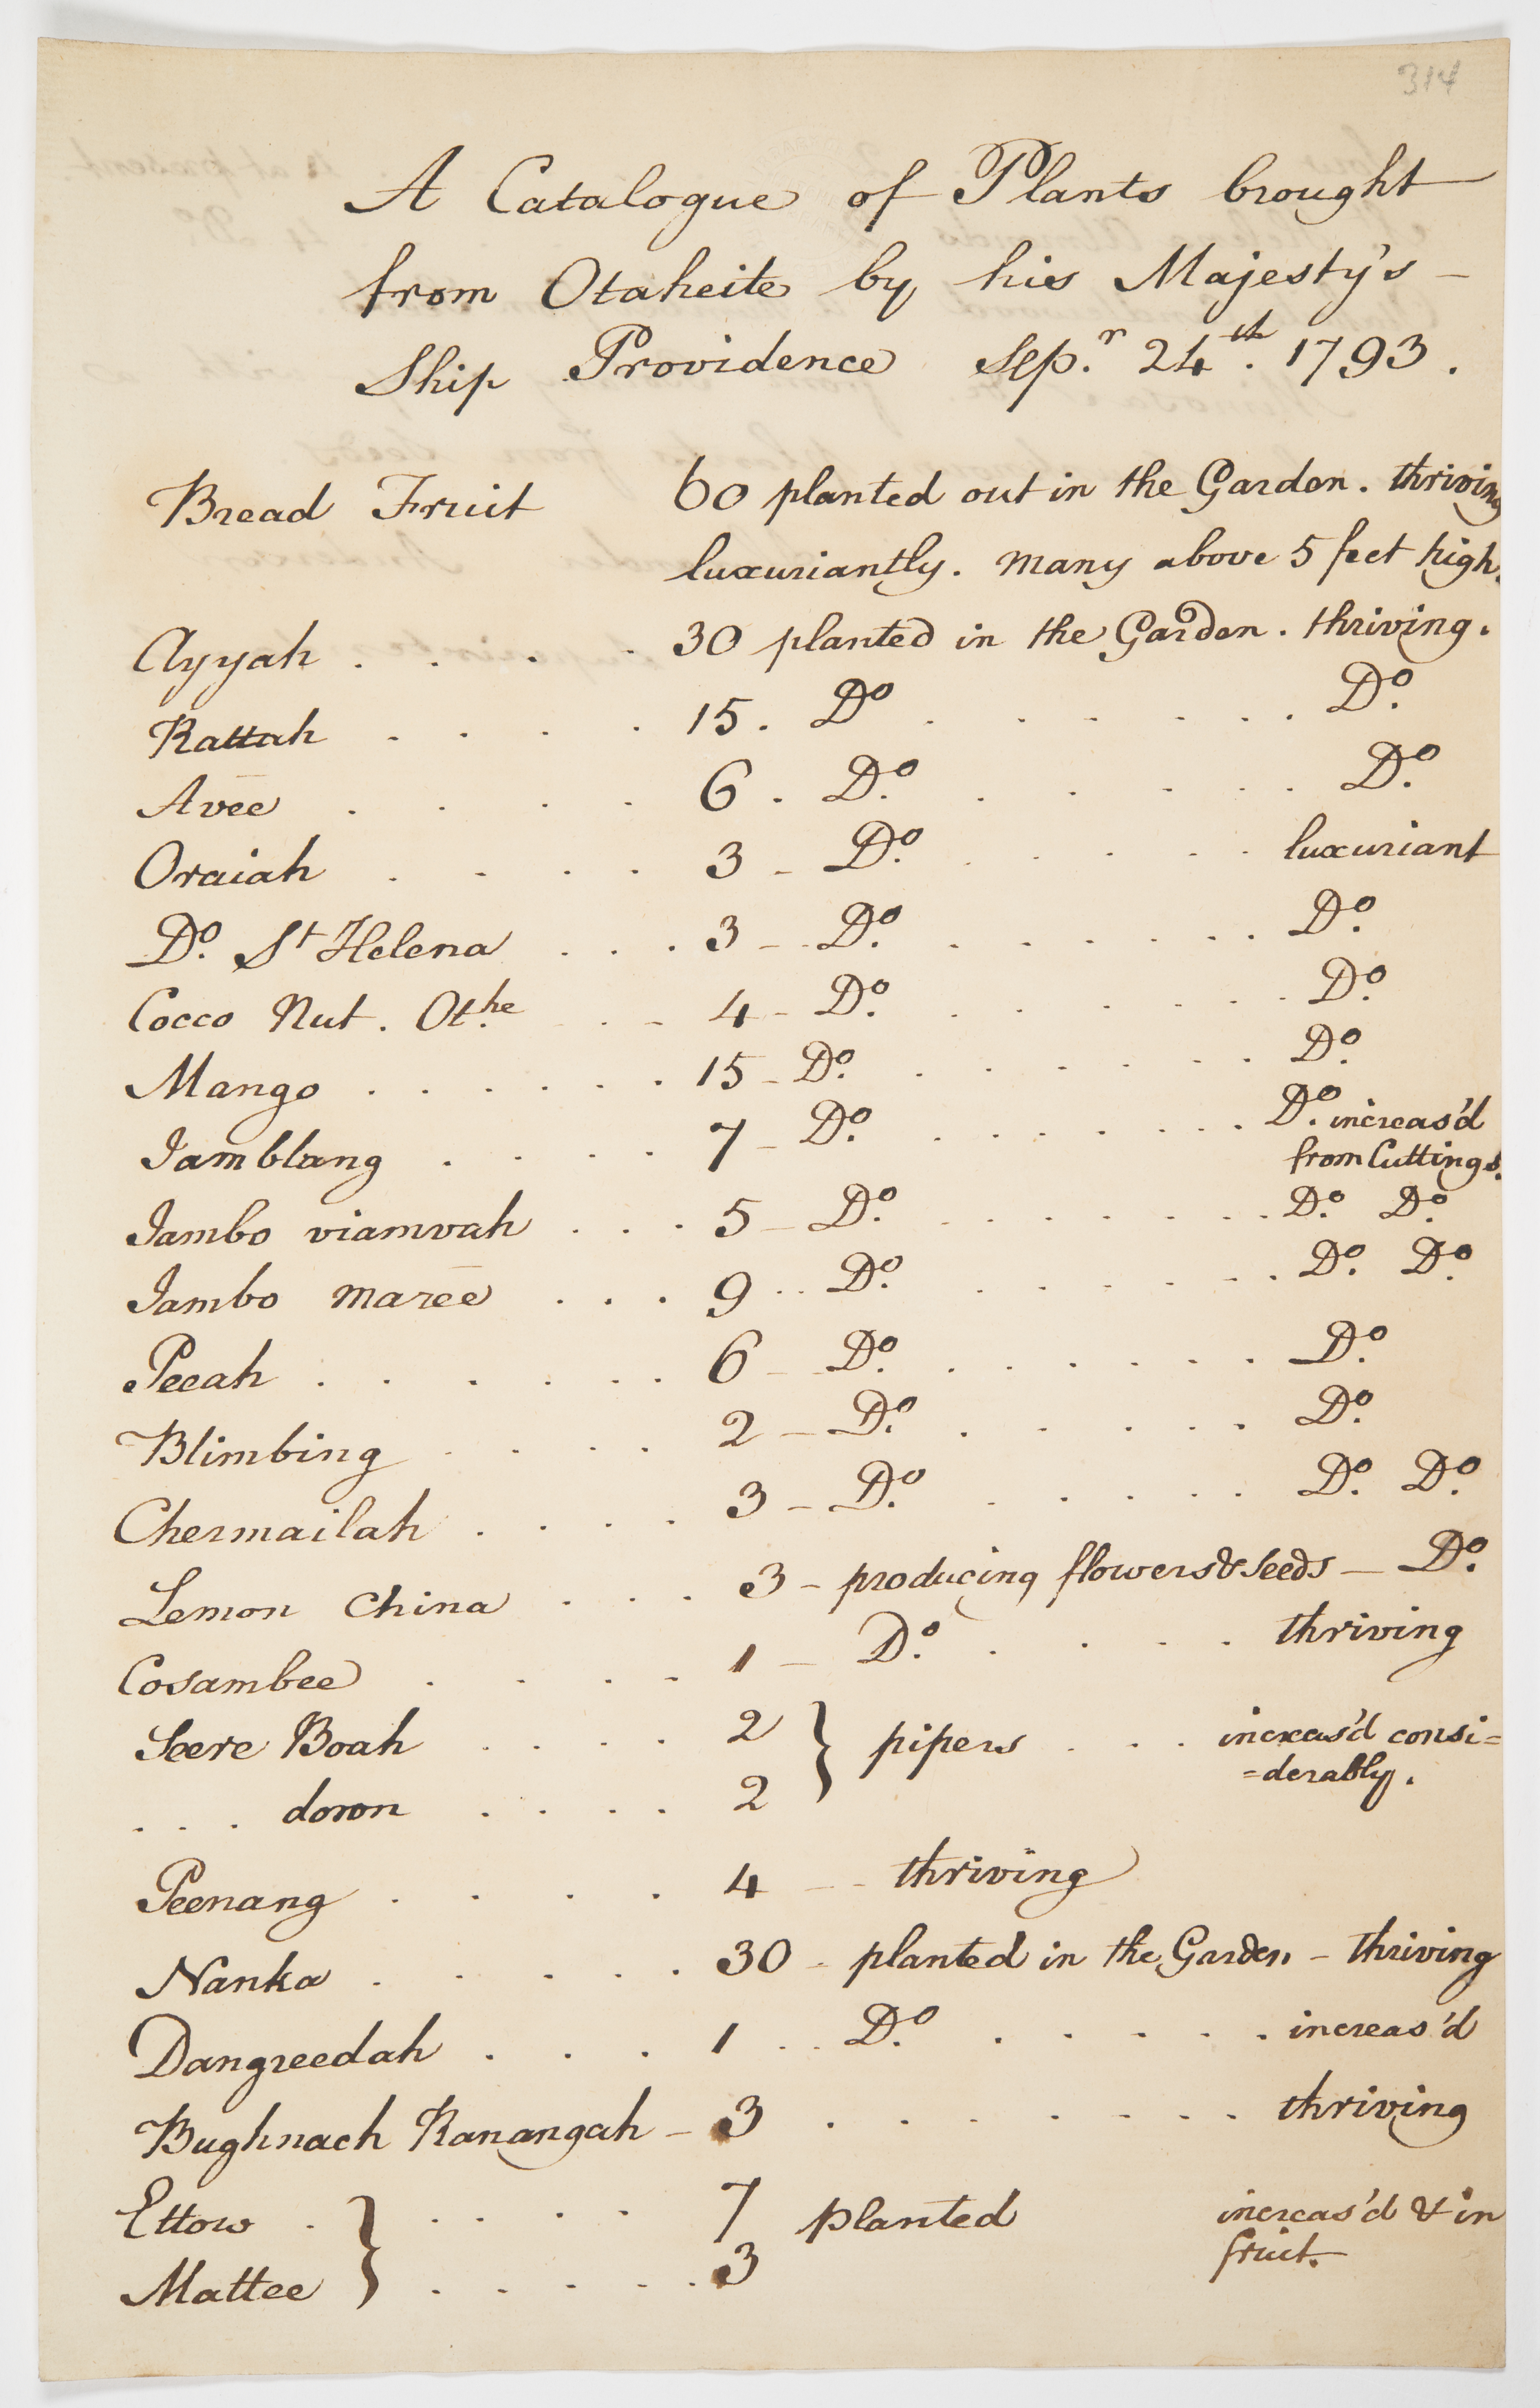 314
A Catalogue of Plants brought
from Otaheite by his Majesty's
Ship Providence Sep.r 24th. 1793.
Bread Fruit 60 planted out in the Garden. thriving
luxuriantly. many above 5 feet high.
Ayyah . . . . 30 planted in the Garden. thriving.
Rattah . . . . 15. Do . . . . . . Do.
Avee . . . . 6. Do. . . . . . . Do.
Oraiah . . . . 3 - Do. . . . . . luxuriant
Do. St Helena . . . 3 - Do. . . . . . . Do.
Cocco Nut. Ot.he . - 4 - Do. . . . . . . Do.
Mango . . . . . . 15 - Do. . . . . . . Do.
Jamblang . . . . 7 - Do. . . . . . . . Do. increas'd
from Cuttings.
Jambo viamvah . . . 5 - Do. . . . . . . . Do. Do.
Jambo maree . . . 9 . . Do. . . . . . . Do. Do.
Peeah . . . . . . 6 - Do. . . . . . . Do.
Blimbing . . . . 2 - Do. . . . . . Do.
Chermailah . . . . 3 - Do. . . . . . Do. Do.
Lemon China . . . 3 - producing flowers & seeds - Do.
Cosambee . . . . 1 - Do. . . . . thriving
Seere Boah . . . . 2 } pipers . . . increas'd consi=
=derably.
. . . down . . . . 2
Peenang . . . . 4 - - thriving
Nanka . . . . . 30 - planted in the Garden - thriving
Dangreedah . . . 1 . . Do. . . . . . increas'd
Bughnach Kanangah - 3 . . . . . . . thriving
Ettow . } . . . . 7 planted increas'd & in
fruit.
Mattee } . . . . . 3